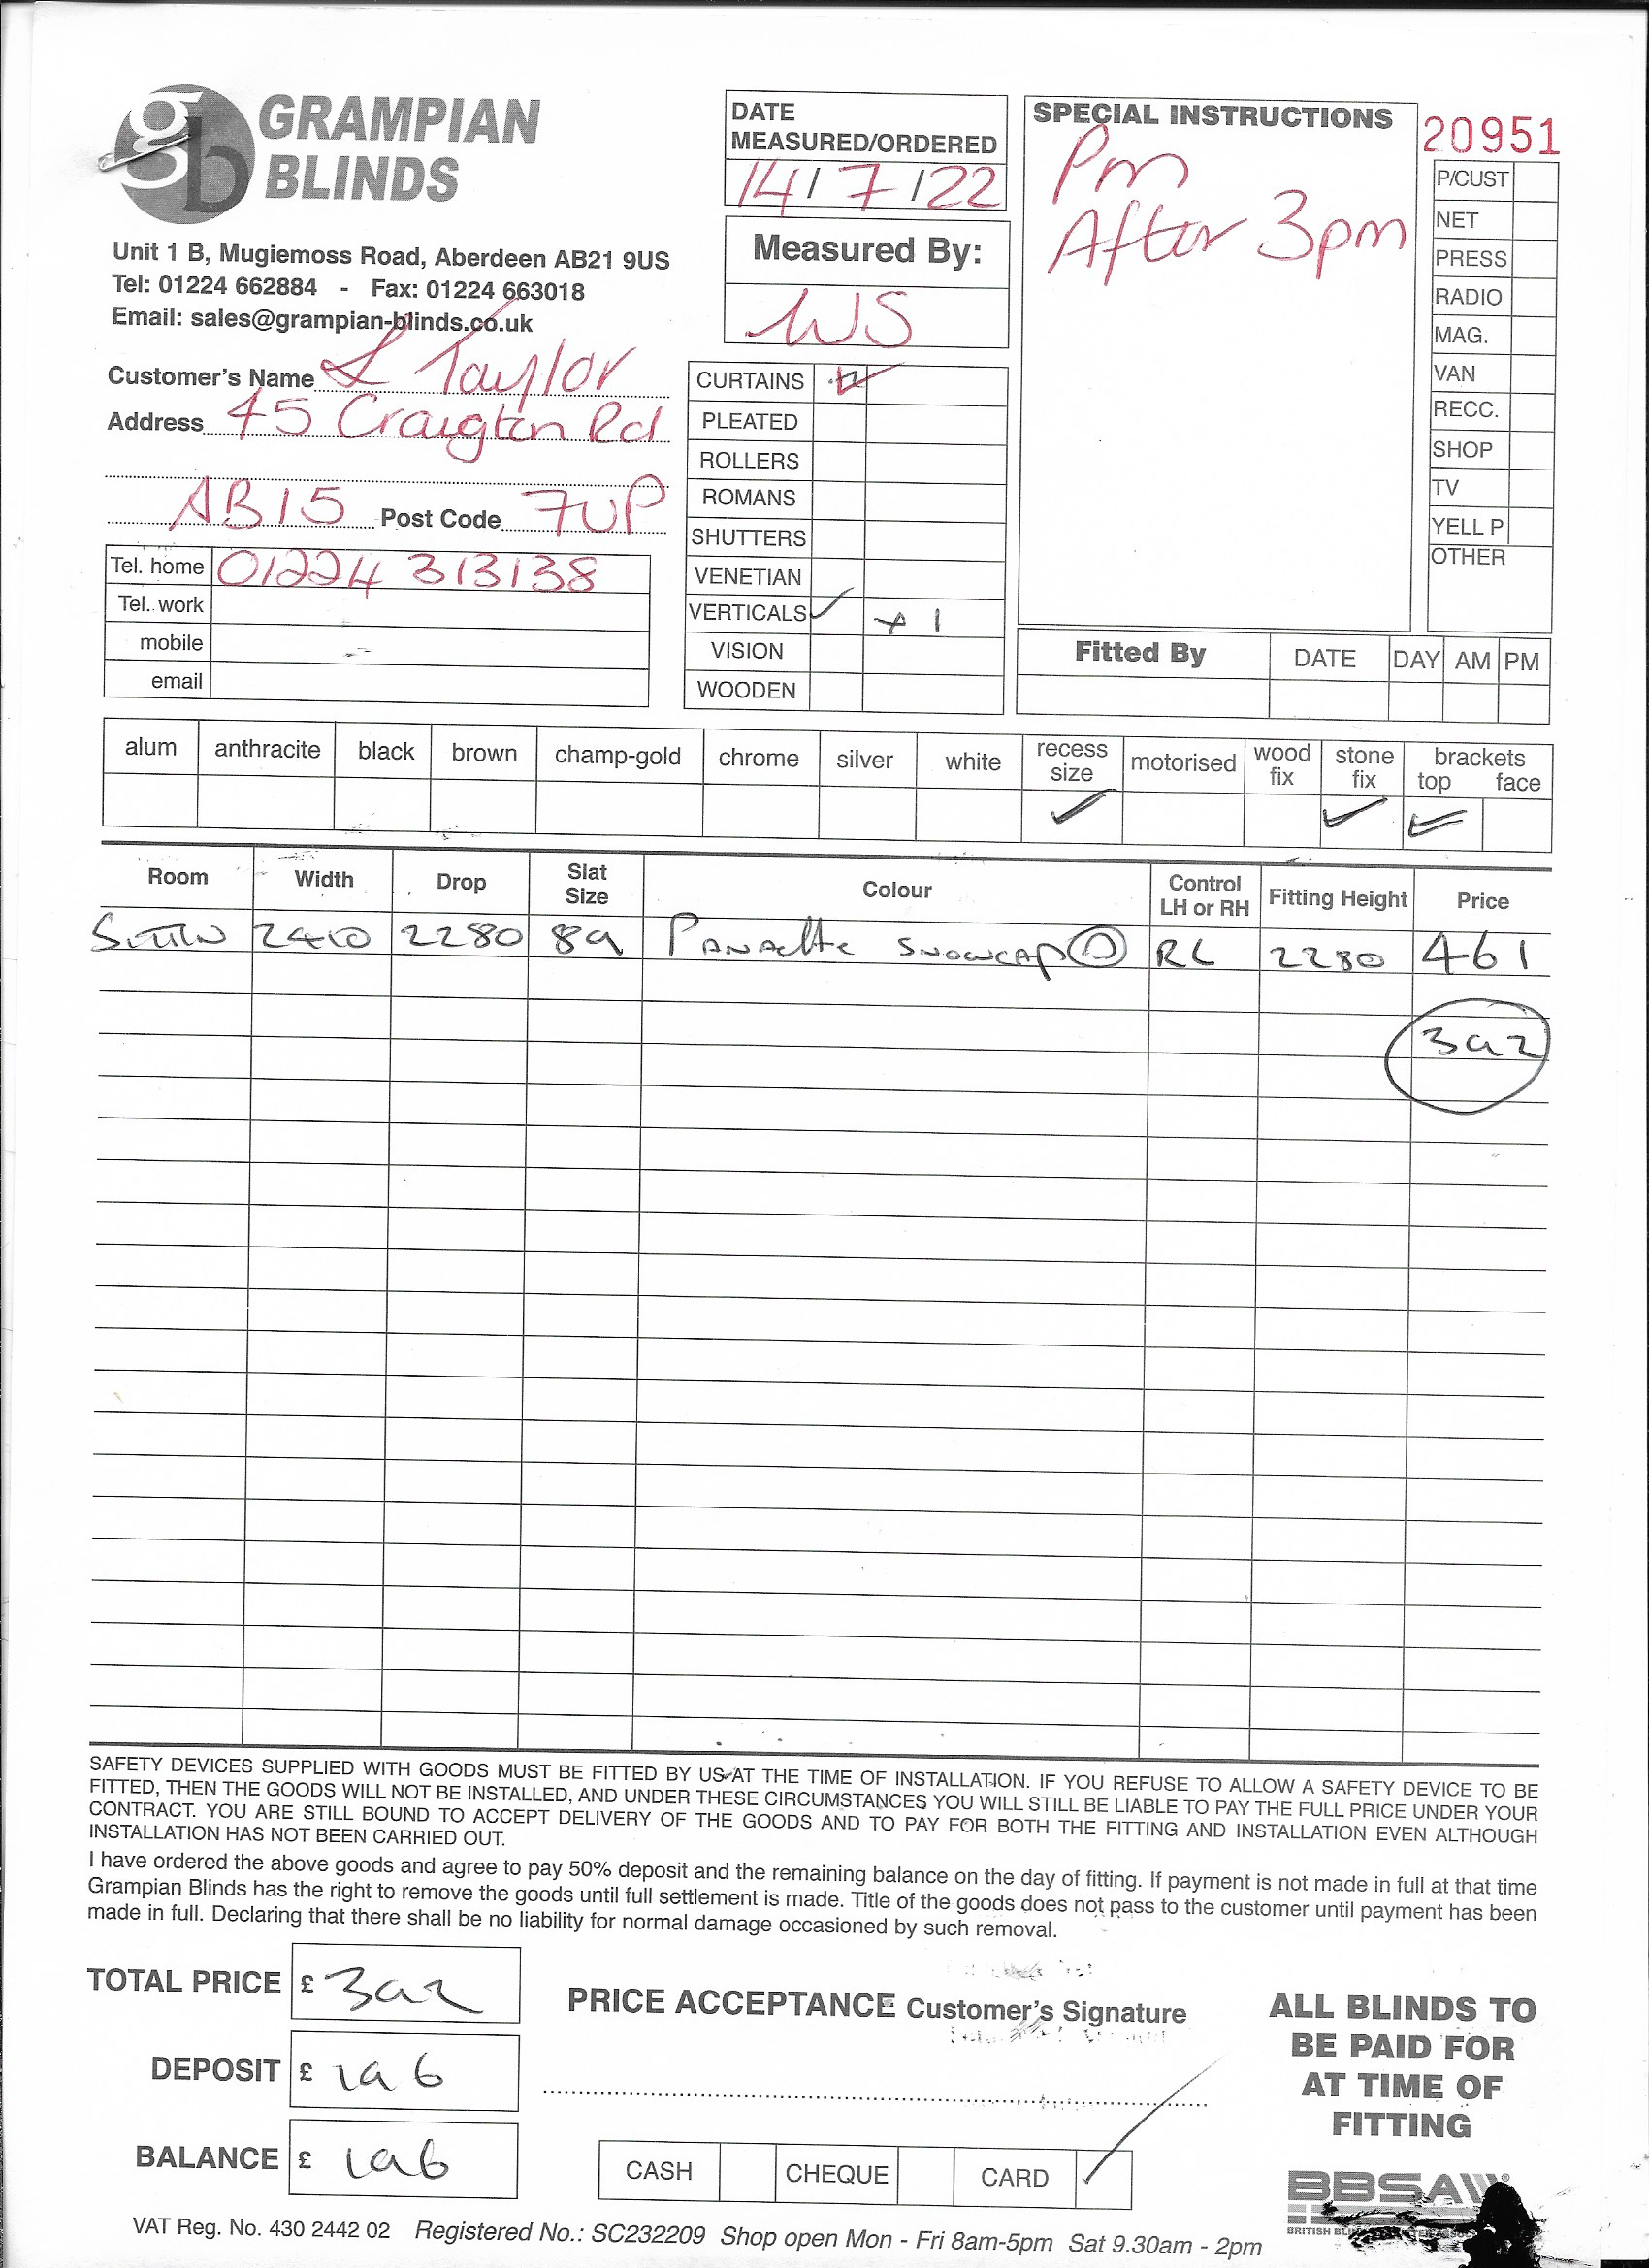 gb GRAMPIAN BLINDS
Unit 1 B, Mugiemoss Road, Aberdeen AB21 9US
Tel: 01224 662884 - Fax: 01224 663018
Email: sales@grampian-blinds.co.uk
Customer's Name L Taylor
Address 45 Craigton Rd
AB15 Post Code 7UP
Tel. home 01224 313138
Tel. work
mobile
email
DATE
MEASURED/ORDERED
14/7/22
Measured By:
WS
CURTAINS
PLEATED
ROLLERS
ROMANS
SHUTTERS
VENETIAN
VERTICALS ✓ + 1
VISION
WOODEN
SPECIAL INSTRUCTIONS
Pm
After 3pm
20951
P/CUST
NET
PRESS
RADIO
MAG.
VAN
RECC.
SHOP
TV
YELL P
OTHER
Fitted By DATE DAY AM PM
alum anthracite black brown champ-gold chrome silver white recess size motorised wood fix stone fix brackets top face
✓ ✓ ✓
Room Width Drop Slat Size Colour Control LH or RH Fitting Height Price
2410 2280 89 SNOWCAP RL 2280 461
392
SAFETY DEVICES SUPPLIED WITH GOODS MUST BE FITTED BY US AT THE TIME OF INSTALLATION. IF YOU REFUSE TO ALLOW A SAFETY DEVICE TO BE
FITTED, THEN THE GOODS WILL NOT BE INSTALLED, AND UNDER THESE CIRCUMSTANCES YOU WILL STILL BE LIABLE TO PAY THE FULL PRICE UNDER YOUR
CONTRACT. YOU ARE STILL BOUND TO ACCEPT DELIVERY OF THE GOODS AND TO PAY FOR BOTH THE FITTING AND INSTALLATION EVEN ALTHOUGH
INSTALLATION HAS NOT BEEN CARRIED OUT.
I have ordered the above goods and agree to pay 50% deposit and the remaining balance on the day of fitting. If payment is not made in full at that time
Grampian Blinds has the right to remove the goods until full settlement is made. Title of the goods does not pass to the customer until payment has been
made in full. Declaring that there shall be no liability for normal damage occasioned by such removal.
TOTAL PRICE £ 392
DEPOSIT £ 196
BALANCE £ 196
PRICE ACCEPTANCE Customer's Signature
CASH CHEQUE CARD ✓
ALL BLINDS TO
BE PAID FOR
AT TIME OF
FITTING
BBSA
BRITISH
VAT Reg. No. 430 2442 02 Registered No.: SC232209 Shop open Mon - Fri 8am-5pm Sat 9.30am - 2pm